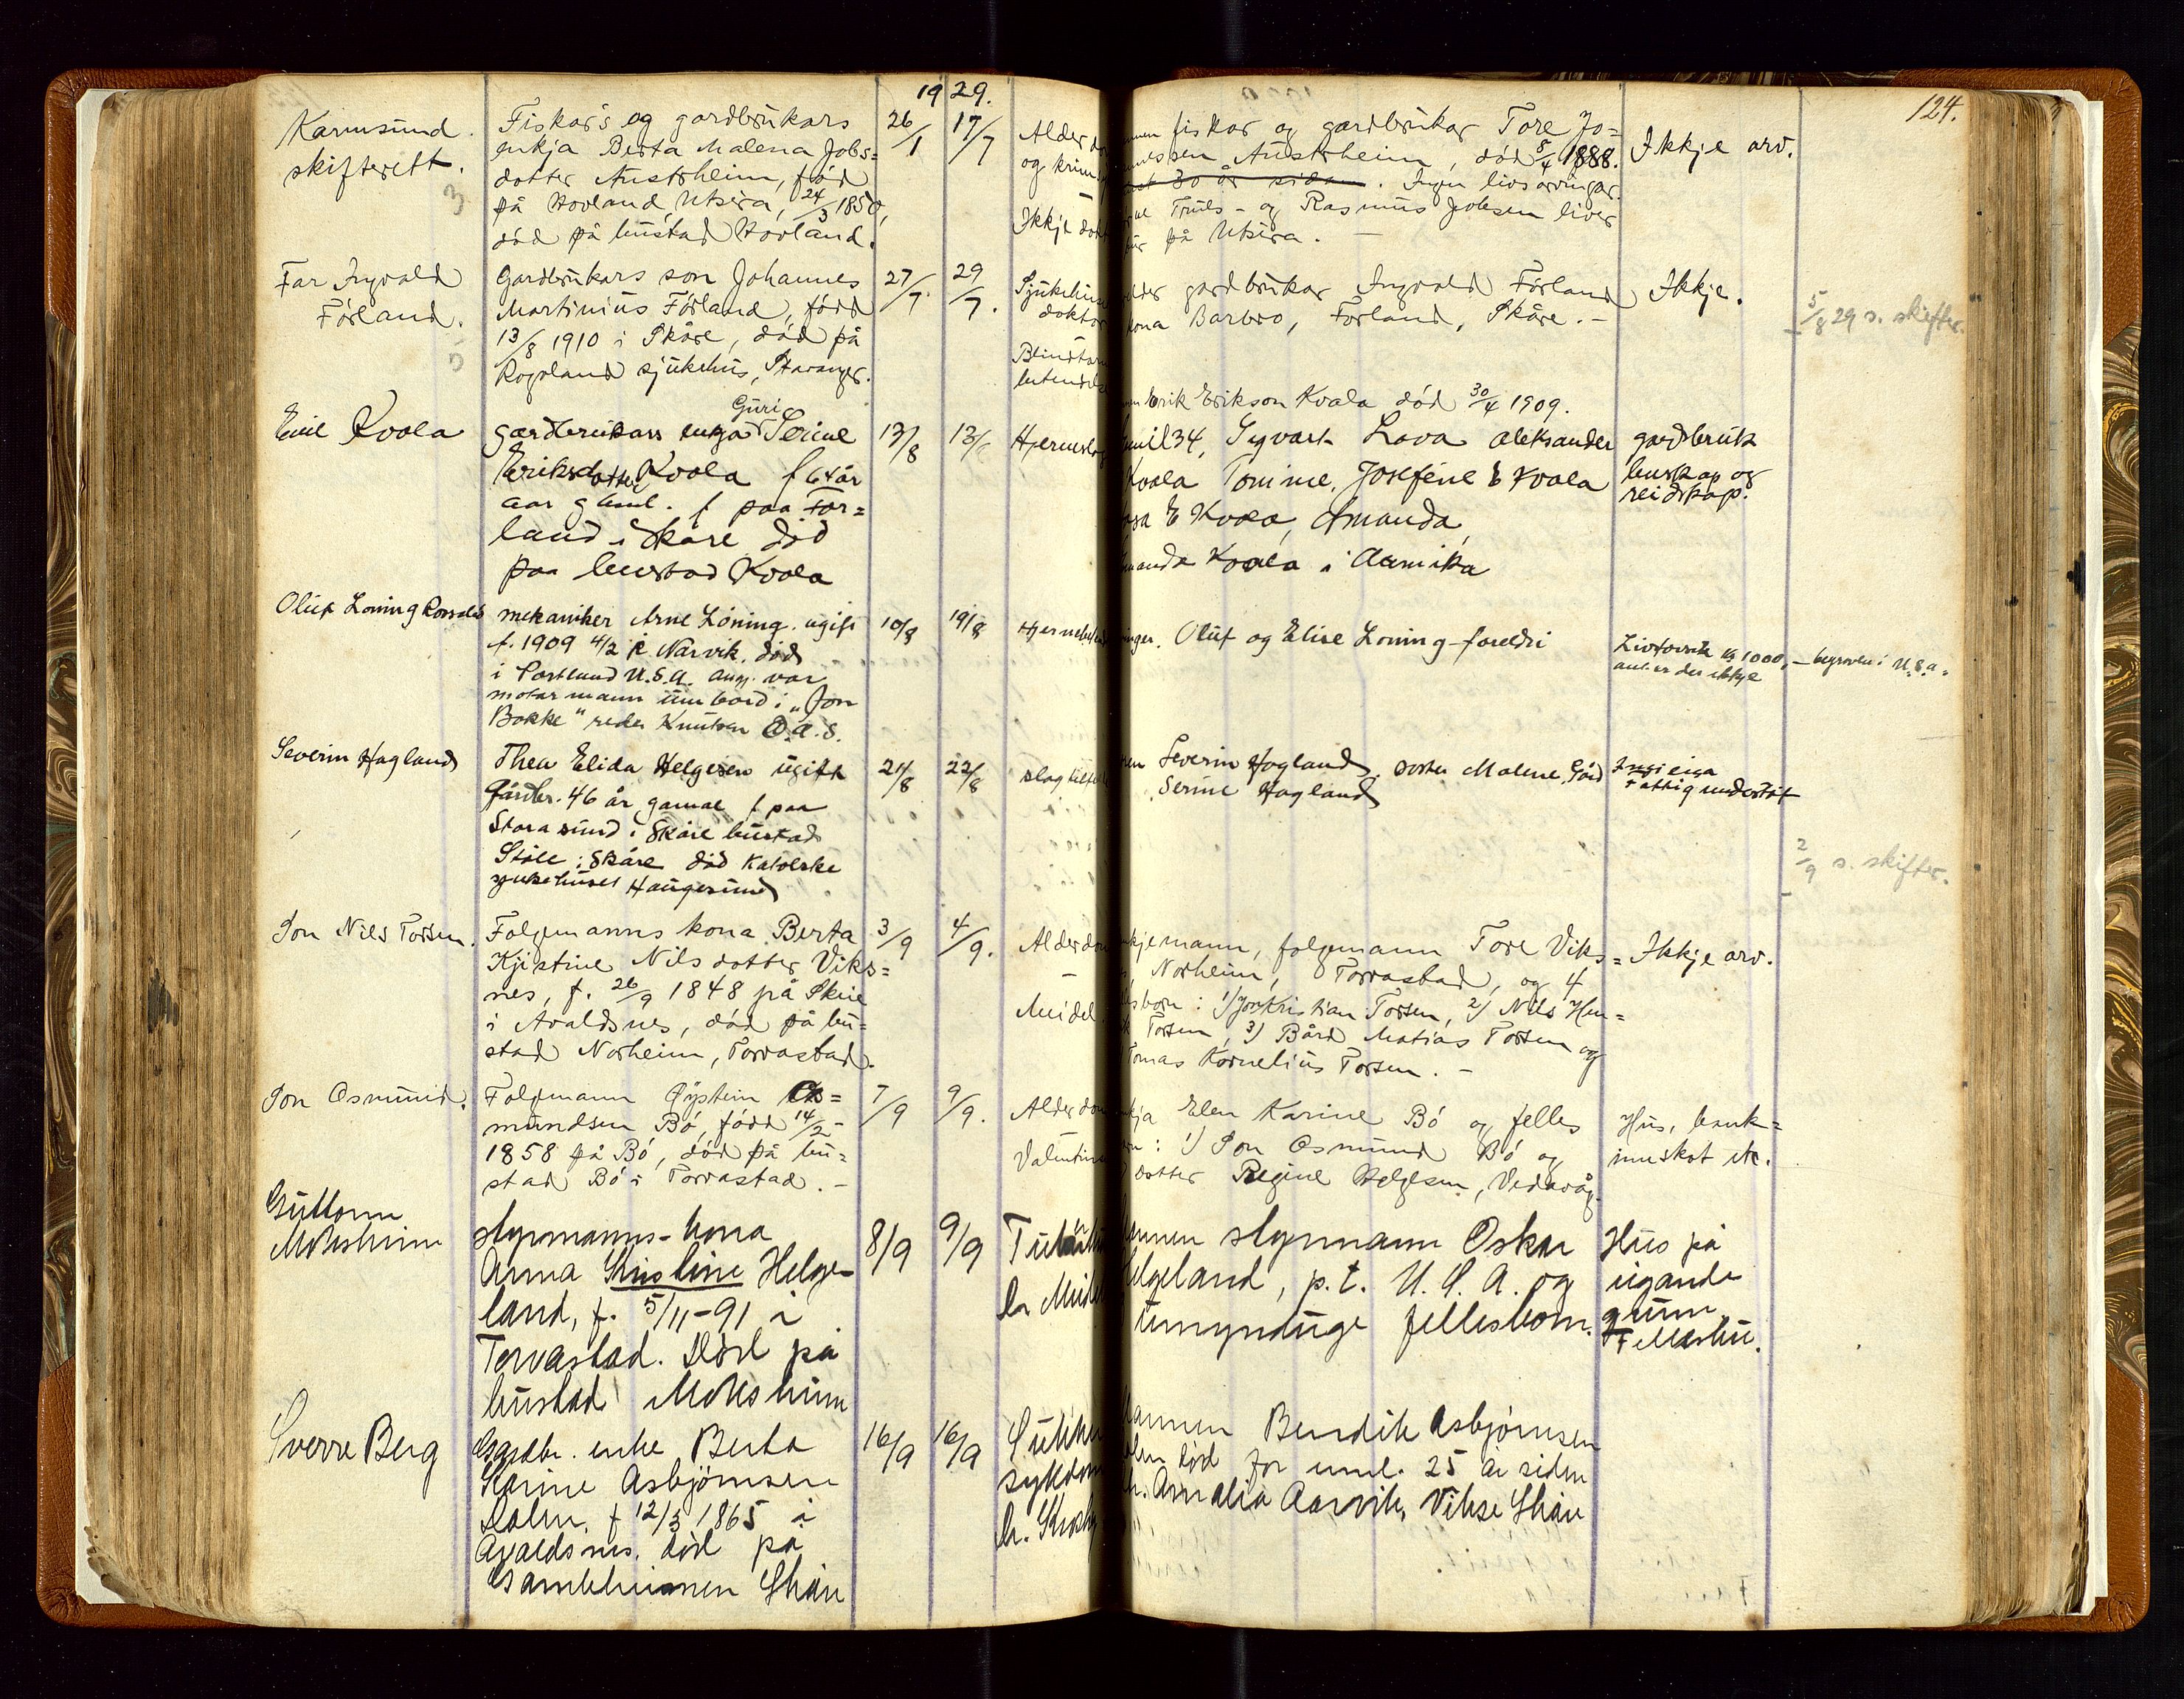 1929.
124.
Karmsund
skifterett.
Fiskars og gardbrukars
enkja Berta Malena Jobs=
dotter Austrheim, fód
på Hovland Utsira, 24/3 1850,
dód på bustad Hovland.
26/1
17/7
Alder
og
Ikkje
fiskar og gardbrukar Tore Jo=
Austrheim, dód 5/4 1888.
30 år sidan. Ingen livsarvingar.
Truls- og Rasmus Jobsen liver
på Utsira. —
Ikkje arv.
3
Far Ingvald
Fórland.
Gardbrukars son Johannes
Martinius Fórland, fódd
13/8 1910 i Skåre, dód på
Rogaland sjukehus, Stavanger.
27/7.
29/7.
Sjukehus
doktor
gardbrukar Ingvald Fórland
Barbro, Fórland, Skåre. —
Ikkje.
5/8 29 s. skifter.
Emil Kvala
Guri
gardbrukars enkja Serine
Eriksdotter Kvala f 64 år
aar gaml. f paa For=
land i Skåre dód
paa bustad Kvala
13/8
13/8
Erik Erikson Kvala dód 30/4 1909.
Emil 34, Syvart Lava Aleksander
Kvala Tomine, Josefine E Kvala
E Kvala, Amanda,
Kvala i Amerika
gardbruk
buskap og
reidskap.
Oluf Loning
mekaniker Arne Lóning. ugift
f. 1909 4/2 i Narvik. dód
i Portland U.S.A. ang. var
motormann umbord i "Jon
Bakke" reder Knutsen O.A.S.
10/8
19/8
Oluf og Elise Loning foreldri
Livforsik kr 1000,- begraven i U.S.A.
anner der ikkje
Severin Hagland
Thea Elida Helgesen ugift
Gårdbr. 46 år gamal f paa
Stora sund i Skåre bustad
Ståle i Skåre dód Katolske
sjukehuset Haugesund
21/8
22/8
Severin Hagland, soster Malene
Serine Hagland
Ingi eiga
Fattig understót
2/9 s. skifter.
Son Nils Torsen.
Folgemanns kona Berta
Kjistine Nilsdotter Viks=
nes, f. 26/9 1848 på Skeie
i Avaldsnes, dód på bu=
stad Norheim, Torvastad.
3/9
4/9.
Alderdom
—
Meidel
enkjemann, folgemann Tore Viks=
Norheim, Torvastad, og 4
born: 1) Jon Kristian Torsen, 2) Nils Hen=
Torsen, 3) Bård Matias Torsen og
Tomas Kornelius Torsen. —
Ikkje arv.
Son Osmund.
Folgemann Óystein Os=
mundsen Bó, fódd 14/2-
1858 på Bó, dód på bu=
stad Bó i Torvastad. —
7/9
9/9.
Alderdom
Valentin
Elen Karine Bó og felles
: 1) Son Osmund Bó og
dotter Regine Helgesen, Vedavåg.
Hus, bank=
innskot etc.
Guttorm
Moksheim
Styrmanns-kona
Anna Kristine Helge-
land, f. 5/11-91 i
Torvastad. Död på
bustad Moksheim
8/9
9/9
Mannen styrmann Oskar
Helgeland, p.t. U.S.A. og
umyndige fellesborn.
Hus på
eigande
grunn,
Fellesbu.
Sverre Berg
Gardbr. enke Berta
Karine Asbjörnsen
Dalen, f 12/3 1865 i
Avaldsnes, död på
Gamleheimen Skåre
16/9
16/9
Sukker
sykdom
Mannen Bendik Asbjörnsen
Dalen död for uml. 25 år siden
Amalia Aarvik, Vikse Skåre